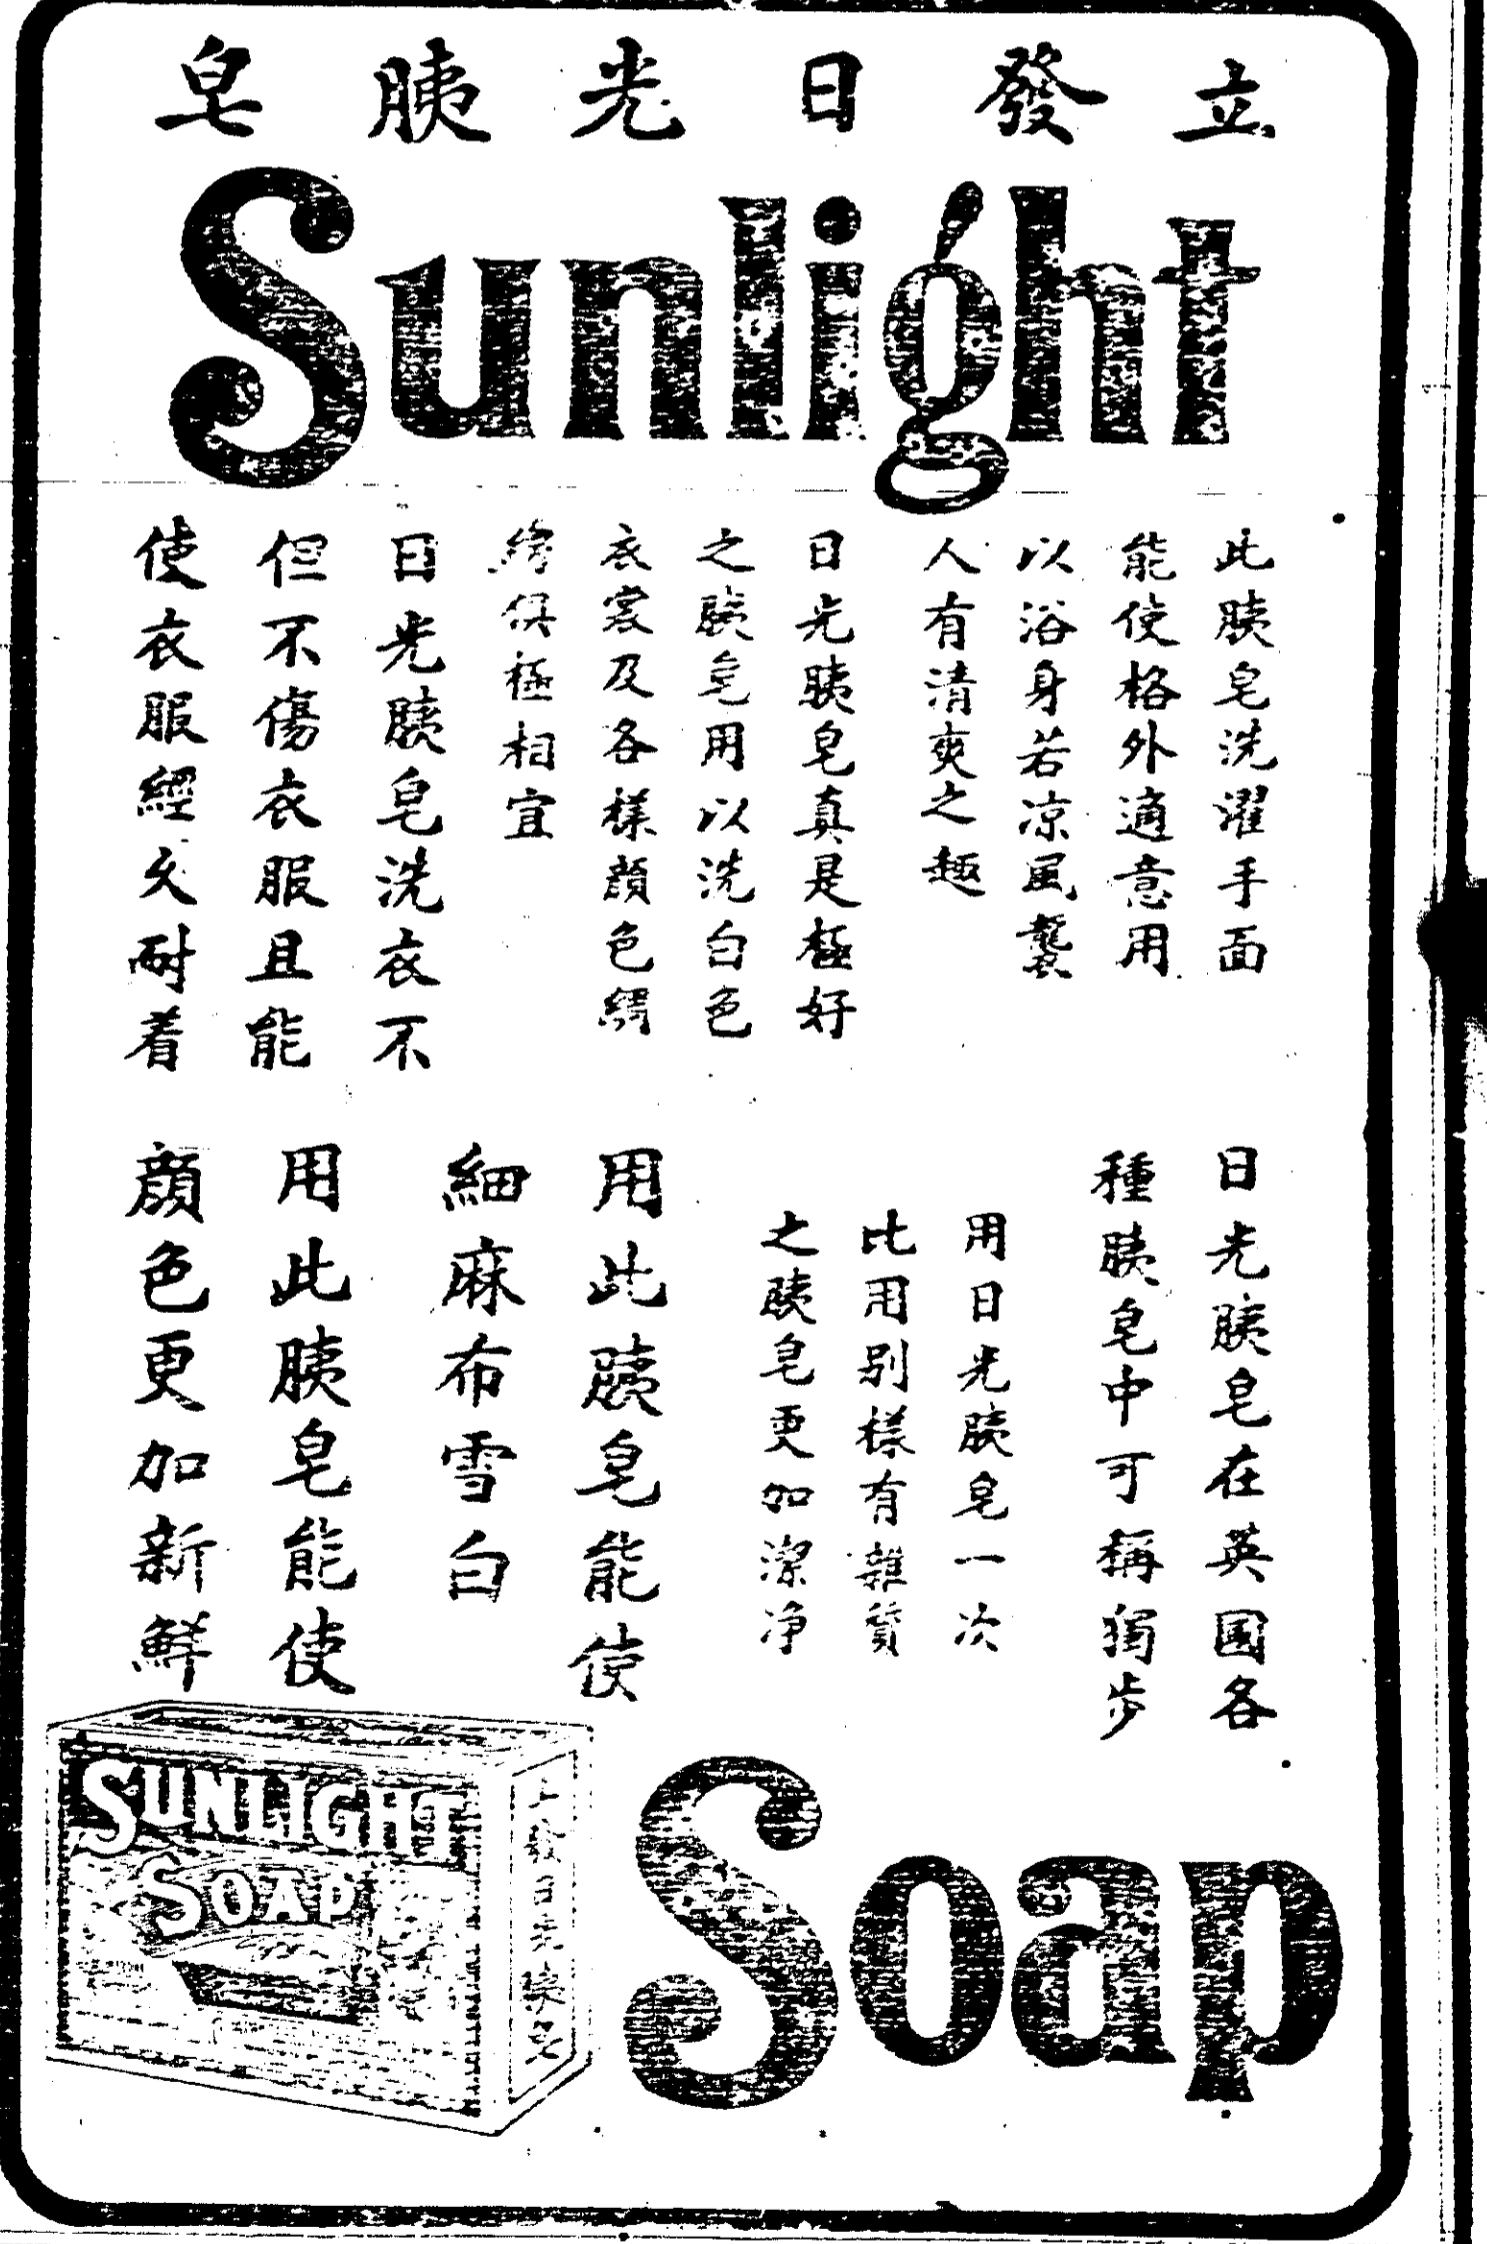 立發日光胰皂
Sunlight
此胰皂洗濯手面
能使格外適意用
以浴身若凉風襲
人有清爽之趣
日光胰皂真是極好
之胰皂用以洗白色
衣裳及各樣顔色綢
俱極相宜
日光胰皂洗衣不
但不傷衣服且能
使衣服經久耐着
日光胰皂在英国各
種胰皂中可稱獨步
用日光胰皂一次
比用别樣有雜質
之胰皂更加潔净
用此胰皂能使
細麻布雪白
用此胰皂能使
顔色更加新鮮
SUNLIGHT
SOAP
日光胰皂
Soap